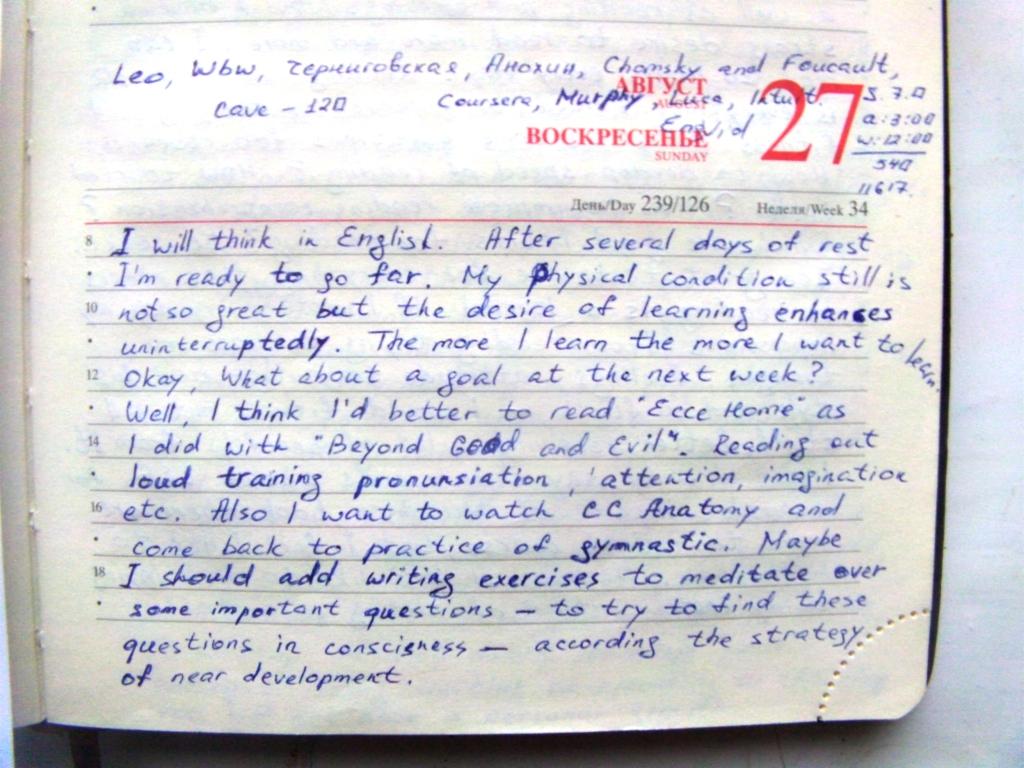 Leo, Wbw, Черниговская, Анохин, Chomsky and Foucault,
Cave - 120 Coursera, Murphy, Luca, Intuit.
EngVid
АВГУСТ
AUGUST
ВОСКРЕСЕНЬЕ
SUNDAY
27
S. 7.0
a: 3:00
w: 12:00
540
11617
День/Day 239/126 Неделя/Week 34
8 I will think in English. After several days of rest
I'm ready to go far. My physical condition still is
10 not so great but the desire of learning enhances
uninterruptedly. The more I learn the more I want to learn.
12 Okay, What about a goal at the next week?
Well, I think I'd better to read "Ecce Homo" as
14 I did with "Beyond Good and Evil". Reading out
loud training pronunsiation, attention, imagination
16 etc. Also I want to watch CC Anatomy and
come back to practice of gymnastic. Maybe
18 I should add writing exercises to meditate over
some important questions - to try to find these
questions in conscisness - according the strategy
of near development.